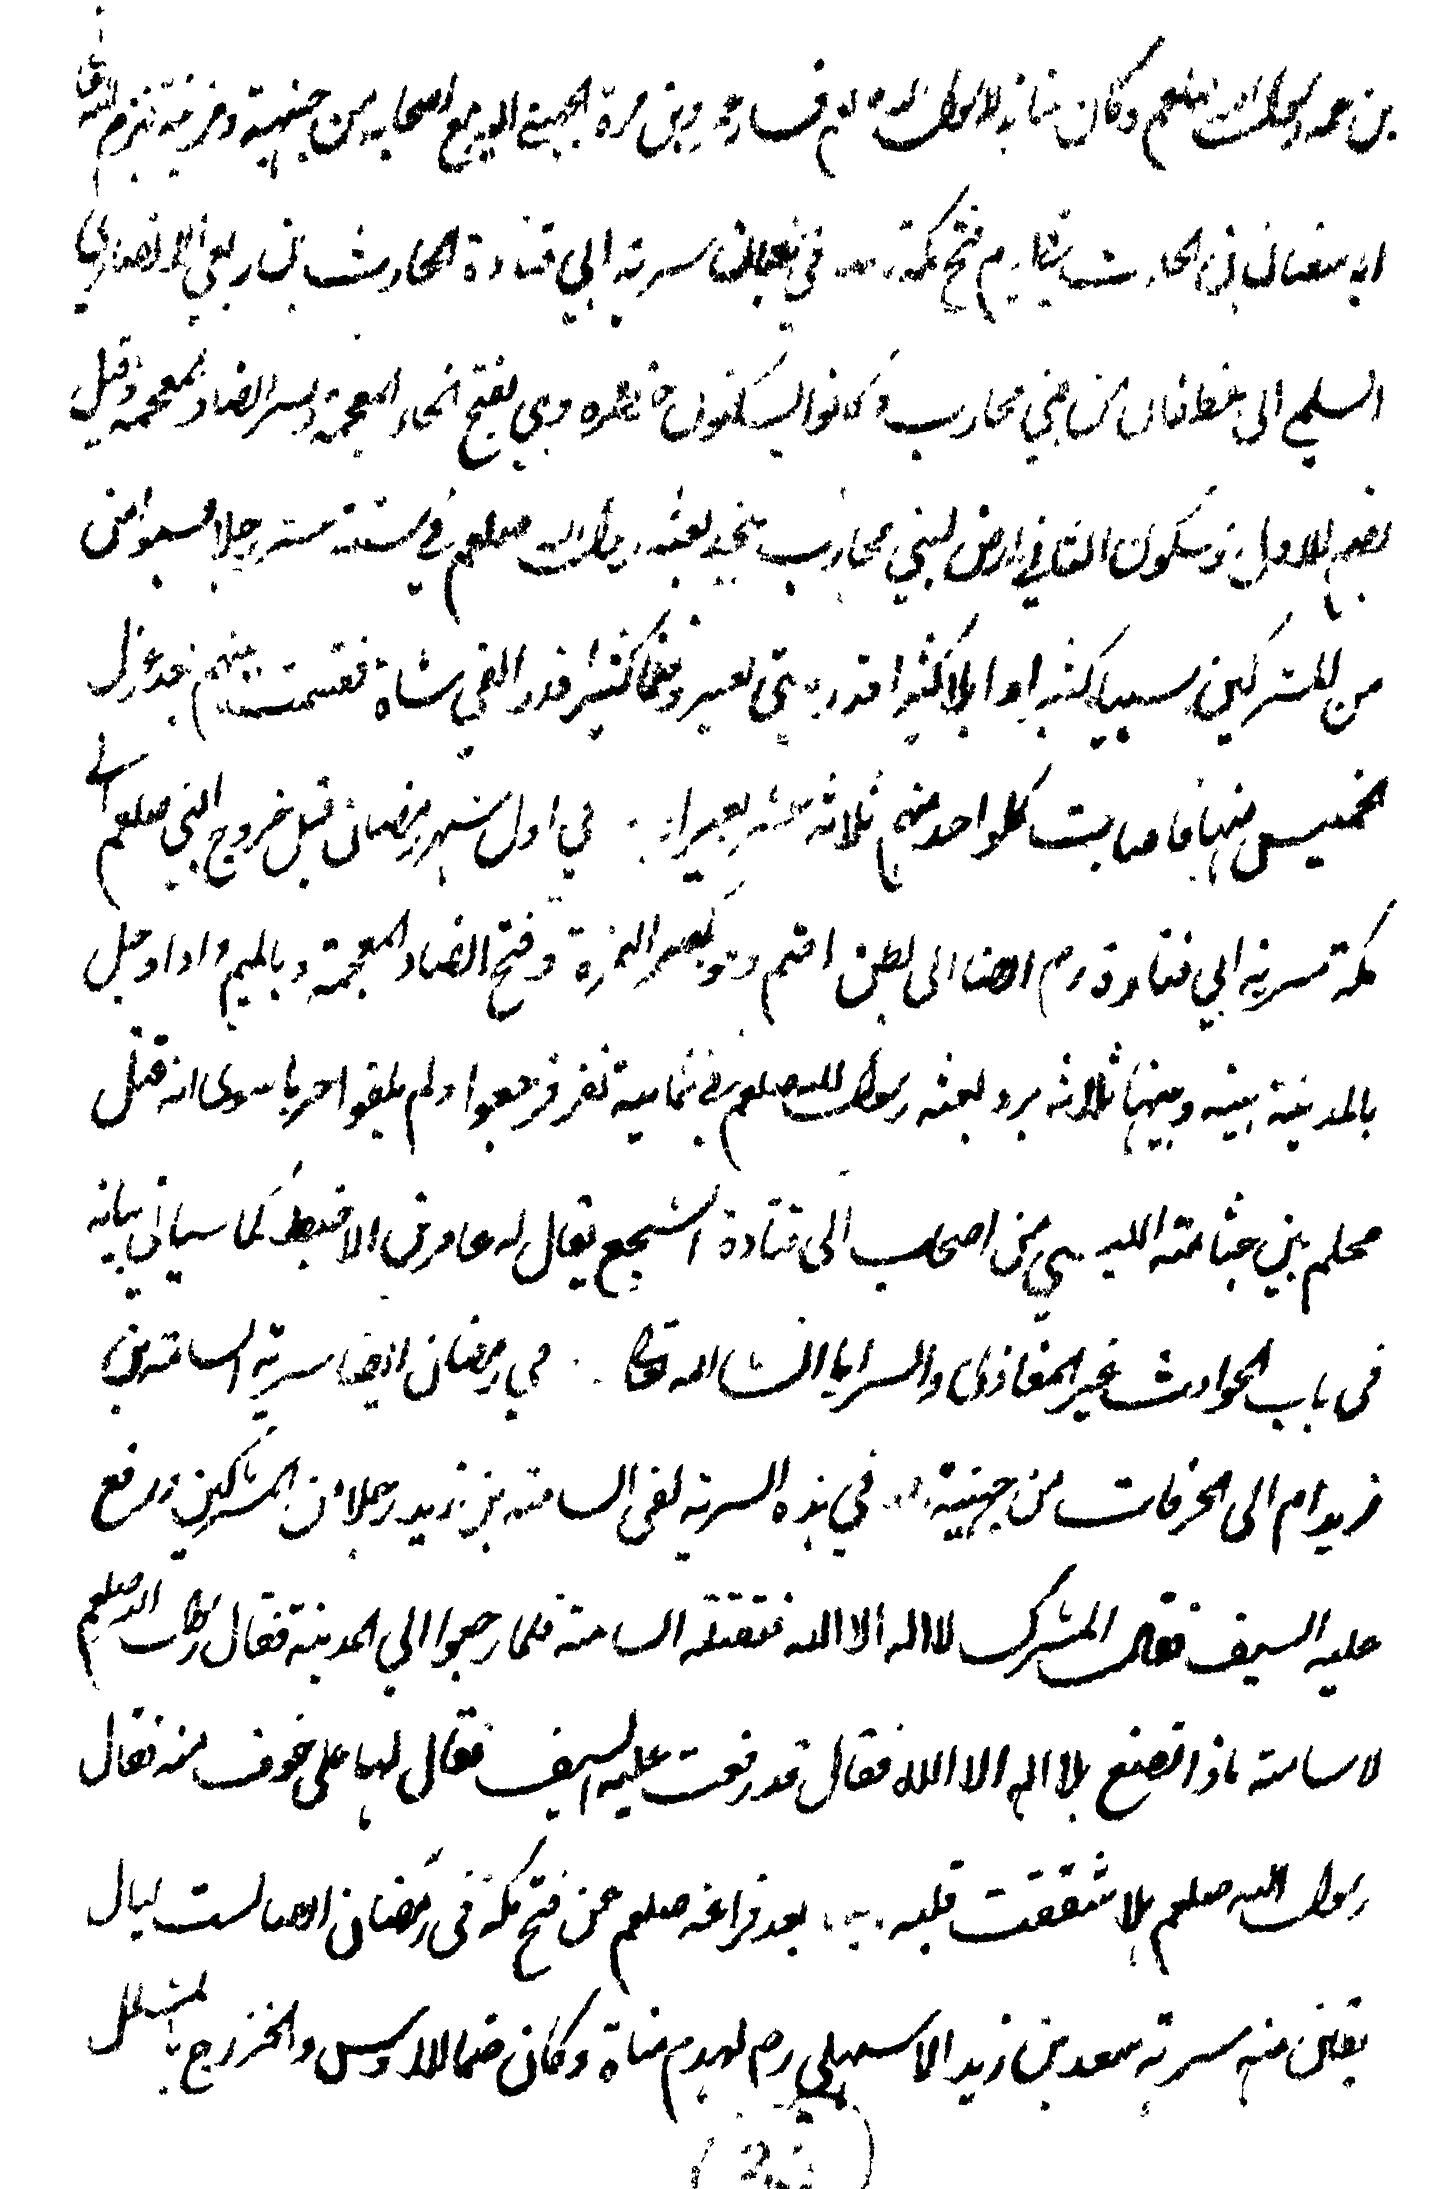 بن عم رسول الله صلعم وكان منابذ لرسول الله صلعم فسار عمرو بن مرة الجهني اليه مع اصحابه من جهينة ومزينة فهزم الله تعالى
ابا سفيان بن الحارث قبل يوم فتح مكة في شعبان سرية ابي قتادة الحارث بن ربعي الانصاري
السلمي الى غطفان من بني محارب وكانوا يسكنون خضرة وهي بفتح الخاء المعجمة وكسر الضاد المعجمة وقيل
بضم الاول وسكون الثاني ارض لبني محارب بنجد بعثه رسول الله صلعم في ستة عشر رجلا فسبوا من
من المشركين سبيا كثيرا وابلا كثيرا قدر مائتي بعير وغنما كثيرا قدر الفي شاة فقسمت بينهم بعد عزل
الخميس منها فاصابت كل واحد منهم ثلاثة عشر بعيرا في اول شهر رمضان قبل خروج النبي صلعم الى
مكة سرية ابي قتادة رم ايضا الى بطن اضم وهو بكسر الهمزة وفتح الضاد المعجمة وبالميم واد او جبل
بالمدينة بينه وبينها ثلاثة برد بعثه رسول الله صلعم في ثمانية نفر فرجعوا ولم يلقوا حربا سوى انه قتل
محلم بن جثامة الليثي من اصحاب ابي قتادة اشجع يقال له عامر بن الاضبط كما سياتي بيانه
في باب الحوادث غير المغازي والسرايا انشاالله تعا في رمضان ايضا سرية اسامة بن
زيد رم الى الحرقات من جهينة في هذه السرية لقى اسامة بن زيد رجلا من المشركين ورفع
عليه السيف فقال المشرك لا اله الا الله فقتله اسامة فلما رجعوا الى المدينة فقال رسول الله صلعم
لاسامة ماذا تصنع بلا اله الا الله فقال قد رفعت عليه السيف فقال لها على خوف منه فقال
رسول الله صلعم هلا شققت قلبه بعد فراغه صلعم من فتح مكة في رمضان ايضا لست ليال
بقين منه سرية سعد بن زيد الاسهلي رم لهدم مناة وكان صنما للاوس والخزرج بالمشلل